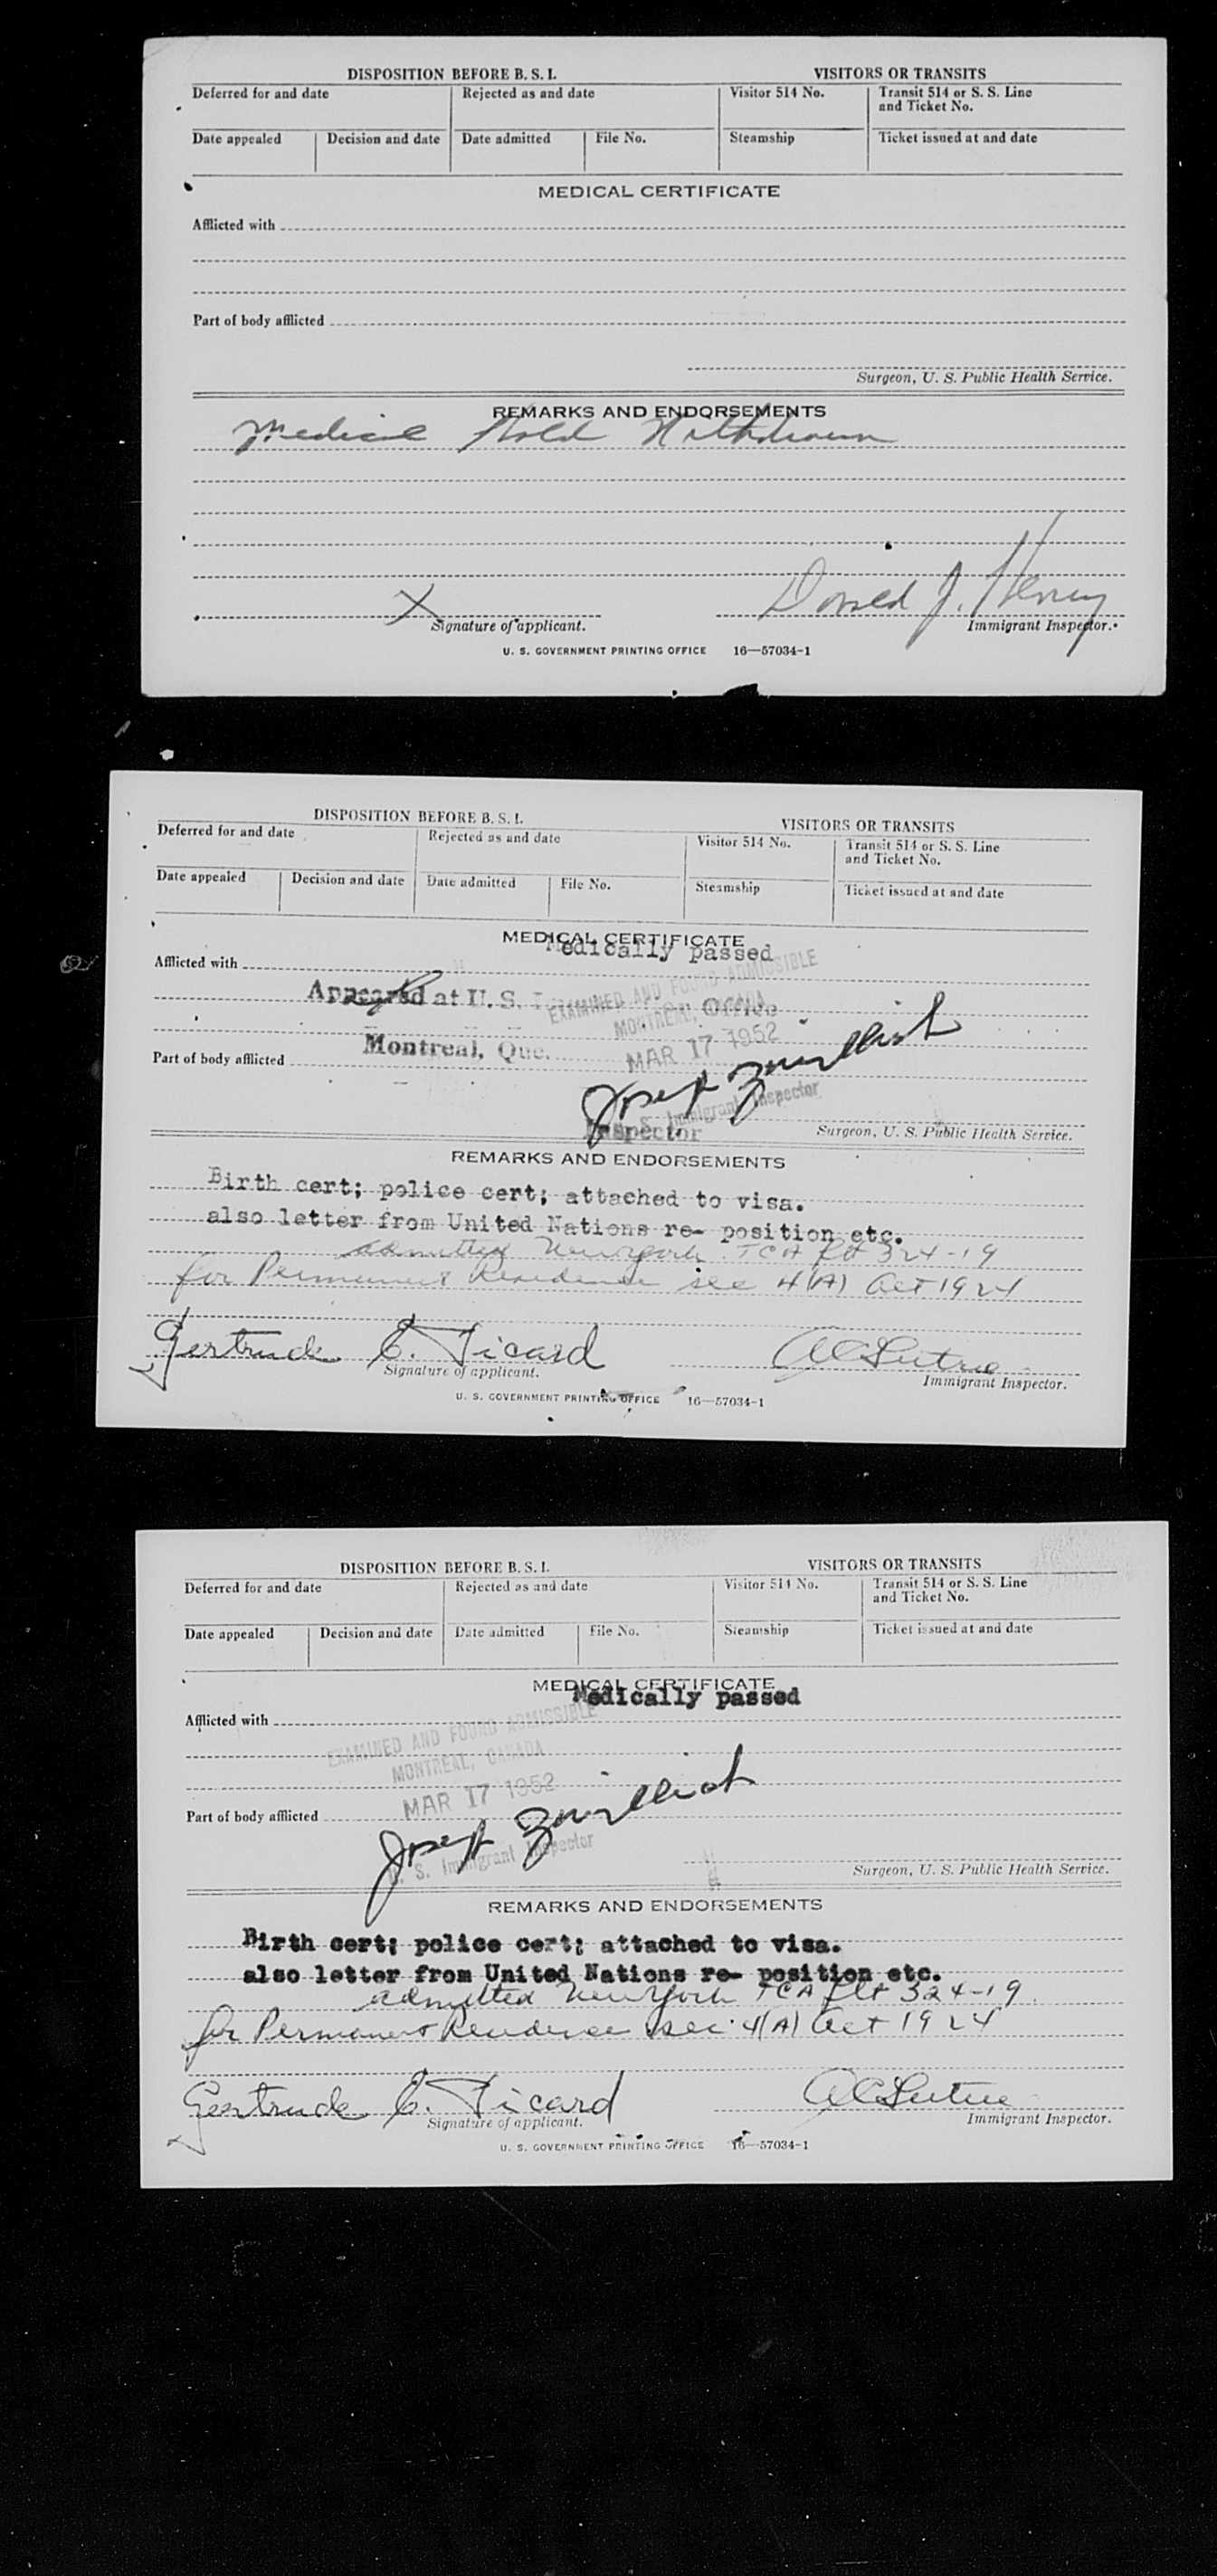 DISPOSITION BEFORE B. S. I.
VISITORS OR TRANSITS
Deferred for and date
Rejected as and date
Visitor 514 No.
Transit 514 or S. S. Line
and Ticket No.
Date appealed
Decision and date
Date admitted
File No.
Steamship
Ticket issued at and date
MEDICAL CERTIFICATE
Afflicted with
Part of body afflicted
Surgeon, U. S. Public Health Service.
REMARKS AND ENDORSEMENTS
Medical Hold Withdrawn
X
Donald J. Henry
Signature of applicant.
Immigrant Inspector.
U. S. GOVERNMENT PRINTING OFFICE 16—57034-1
DISPOSITION BEFORE B. S. I.
VISITORS OR TRANSITS
Deferred for and date
Rejected as and date
Visitor 514 No.
Transit 514 or S. S. Line
and Ticket No.
Date appealed
Decision and date
Date admitted
File No.
Steamship
Ticket issued at and date
MEDICAL CERTIFICATE
Medically passed
Afflicted with
EXAMINED AND FOUND ADMISSIBLE
Appeared at U. S. Office
MONTREAL, CANADA
Montreal, Que.
MAR 17 1952
Part of body afflicted
Joseph
U. S. Immigrant Inspector
Inspector
Surgeon, U. S. Public Health Service.
REMARKS AND ENDORSEMENTS
Birth cert; police cert; attached to visa.
also letter from United Nations re- position etc.
admitted New York TCA flt 324-19
for Permanent Residence sec 4(A) Act 1924
Gertrude E. Picard
Signature of applicant.
Immigrant Inspector.
U. S. GOVERNMENT PRINTING OFFICE 16—57034-1
DISPOSITION BEFORE B. S. I.
VISITORS OR TRANSITS
Deferred for and date
Rejected as and date
Visitor 514 No.
Transit 514 or S. S. Line
and Ticket No.
Date appealed
Decision and date
Date admitted
File No.
Steamship
Ticket issued at and date
MEDICAL CERTIFICATE
Medically passed
Afflicted with
EXAMINED AND FOUND ADMISSIBLE
MONTREAL, CANADA
MAR 17 1952
Part of body afflicted
Joseph
U. S. Immigrant Inspector
Surgeon, U. S. Public Health Service.
REMARKS AND ENDORSEMENTS
Birth cert; police cert; attached to visa.
also letter from United Nations re- position etc.
admitted New York TCA flt 324-19
for Permanent Residence sec 4(A) Act 1924
Gertrude E. Picard
Signature of applicant.
Immigrant Inspector.
U. S. GOVERNMENT PRINTING OFFICE 16—57034-1